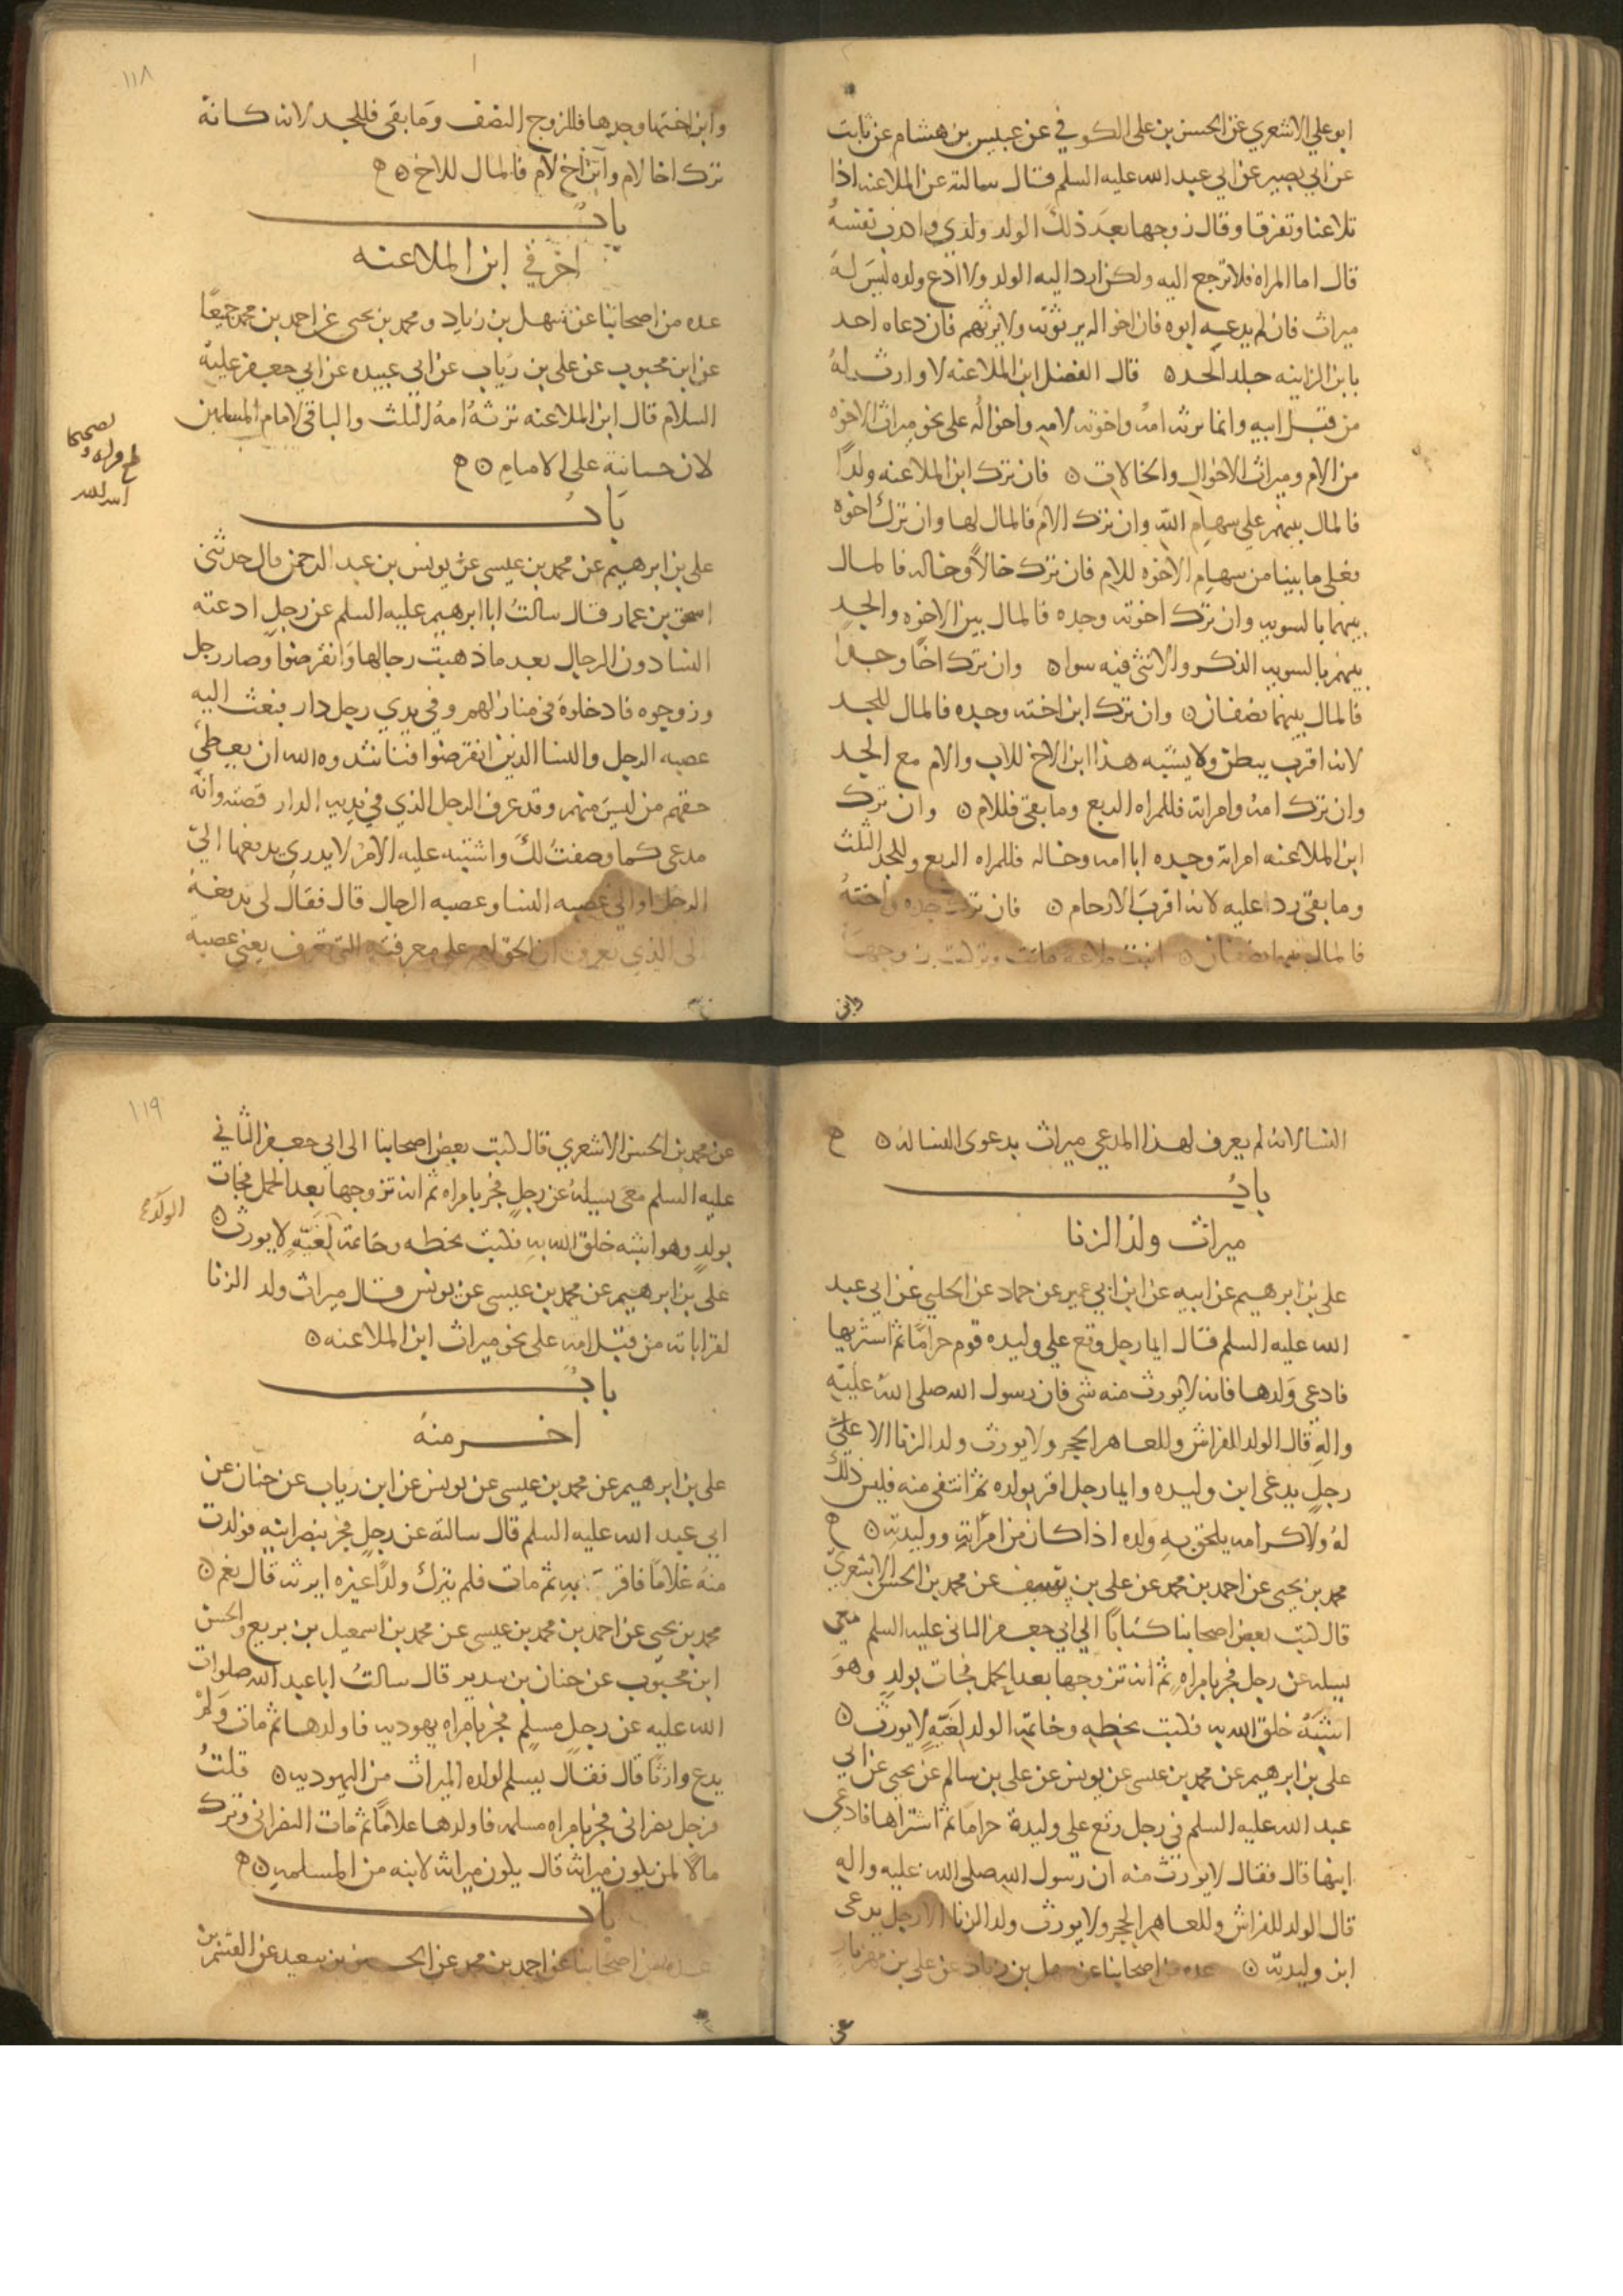 ابو علي الاشعري عن الحسن بن علي الكوفي عن عبيس بن هشام عن ثابت
عن ابي بصير عن ابي عبد الله عليه السلم قال سالته عن الملاعنه اذا
تلاعنا وتفرقا وقال زوجها بعد ذلك الولد ولدي واكذب نفسه
قال اما المراه فلا ترجع اليه ولكن ارد اليه الولد ولا ادع ولده ليس له
ميراث فان لم يدعه ابوه فان اخواله يرثونه ولا يرثهم فان دعاه احد
بابن الزانيه جلد الحد ○ قال الفضل ابن الملاعنه لا وارث له
من قبل ابيه وانما ترثه امه واخوته لامه واخواله على نحو ميراث الاخوه
من الام وميراث الاخوال والخالات ○ فان ترك ابن الملاعنه ولدًا
فالمال بينهم على سهام الله وان ترك الام فالمال لها وان ترك اخوه
فعلى ما بينا من سهام الاخوه للام فان ترك خالاً وخاله فالمال
بينهما بالسويه وان ترك اخوته وجده فالمال بين الاخوه والجد
بينهم بالسويه الذكر والانثى فيه سوا ○ وان ترك اخًا وجدا
فالمال بينهما نصفان ○ وان ترك ابن اخته وجده فالمال للجد
لانه اقرب ببطن ولا يشبه هذا ابن الاخ للاب والام مع الجد
وان ترك امه وامراته فللمراه الربع وما بقي فللام ○ وان ترك
ابن الملاعنه امراته وجده ابا امه وخاله فللمراه الربع وللجد الثلث
وما بقي رد عليه لانه اقرب الارحام ○ فان ترك جده واخته
فالمال بينهما نصفان ○ ابنت ملاعنه ماتت وتركت زوجها
وابن
١١٨
وابن اختها وجدها فللزوج النصف وما بقي فللجد لانه كانه
ترك اخا لام وابن اخ لام فالمال للاخ ○ ه
باب
اخر في ابن الملاعنه
عده من اصحابنا عن سهل بن زياد ومحمد بن يحيى عن احمد بن محمد جميعًا
عن ابن محبوب عن علي بن رياب عن ابي عبيده عن ابي جعفر عليه
السلام قال ابن الملاعنه ترثه امه الثلث والباقي لامام المسلمين
لان جنايته على الامام ○ ه
باب
علي بن ابرهيم عن محمد بن عيسى عن يونس بن عبد الرحمن قال حدثني
اسحق بن عمار قال سالت ابا ابرهيم عليه السلم عن رجل ادعته
النسا دون الرجال بعد ما ذهبت رجالها وانقرضوا وصار رجل
وزوجوه فادخلوه في منازلهم وفي يدي رجل دار فبعث اليه
عصبه الرجل والنسا الذين انقرضوا فناشدوه الله ان يعطي
حقهم من ليس منهم وقد عرف الرجل الذي في يديه الدار قصته وانه
مدعي كما وصفت لك واشتبه عليه الامر لا يدري يدفعها الى
الرجل او الى عصبه النسا وعصبه الرجال قال فقال لي يدفعه
الى الذي يعرف ان الحق لهم على معرفته التي تعرف يعني عصبه
النسا لانه لم يعرف لهذا المدعي ميراث بدعوى النسا له ○ ه
باب
ميراث ولد الزنا
علي بن ابرهيم عن ابيه عن ابن ابي عمير عن حماد عن الحلبي عن ابي عبد
الله عليه السلم قال ايما رجل وقع على وليده قوم حرامًا ثم اشتريها
فادعى ولدها فانه لا يورث منه شي فان رسول الله صلى الله عليه
واله قال الولد للفراش وللعاهر الحجر ولا يورث ولد الزنا الا على
رجل يدعى ابن وليده وايما رجل اقر بولده ثم انتفى منه فليس ذلك
له ولا كرامه يلحق به ولده اذا كان من امراته ووليدته ○ ه
محمد بن يحيى عن احمد بن محمد عن علي بن سيف عن محمد بن الحسن الاشعري
قال كتب بعض اصحابنا كتابًا الى ابي جعفر الثاني عليه السلم معي
يسيله عن رجل فجر بامراه ثم انه تزوجها بعد الحمل فجات بولد وهو
اشبه خلق الله به فكتب بخطه وخاتمه الولد لغية لا يورث ○
علي بن ابرهيم عن محمد بن عيسى عن يونس عن علي بن سالم عن يحيى عن ابي
عبد الله عليه السلم في رجل وقع على وليدة حرامًا ثم اشتراها فادعى
ابنها قال فقال لا يورث منه ان رسول الله صلى الله عليه واله
قال الولد للفراش وللعاهر الحجر ولا يورث ولد الزنا الا رجل يدعى
ابن وليدته ○ عده من اصحابنا عن سهل بن زياد عن علي بن مهزيار
عن
١١٩
عن محمد بن الحسن الاشعري قال كتب بعض اصحابنا الى ابي جعفر الثاني
عليه السلم معي يسيله عن رجل فجر بامراه ثم انه تزوجها بعد الحمل فجات
بولد وهو اشبه خلق الله به فكتب بخطه وخاتمه لغية لا يورث ○
الولد
علي بن ابرهيم عن محمد بن عيسى عن يونس قال ميراث ولد الزنا
لقراباته من قبل امه على نحو ميراث ابن الملاعنه ○
باب
اخر منه
علي بن ابرهيم عن محمد بن عيسى عن يونس عن ابن رياب عن حنان عن
ابي عبد الله عليه السلم قال سالته عن رجل فجر بنصرانيه فولدت
منه غلامًا فاقر به ثم مات فلم يترك ولدًا غيره ايرثه قال نعم ○
محمد بن يحيى عن احمد بن محمد بن عيسى عن محمد بن اسمعيل بن بزيع والحسن
ابن محبوب عن حنان بن سدير قال سالت ابا عبد الله صلوات
الله عليه عن رجل مسلم فجر بامراه يهوديه فاولدها ثم مات ولم
يدع وارثًا قال فقال يسلم لولده الميراث من اليهوديه ○ قلت
فرجل نصراني فجر بامراه مسلمه فاولدها غلامًا ثم مات النصراني وترك
مالا لمن يكون ميراثه قال يكون ميراثه لابنه من المسلمه ○ ه
باب
عده من اصحابنا عن احمد بن محمد عن الحسين بن سعيد عن القسم بن